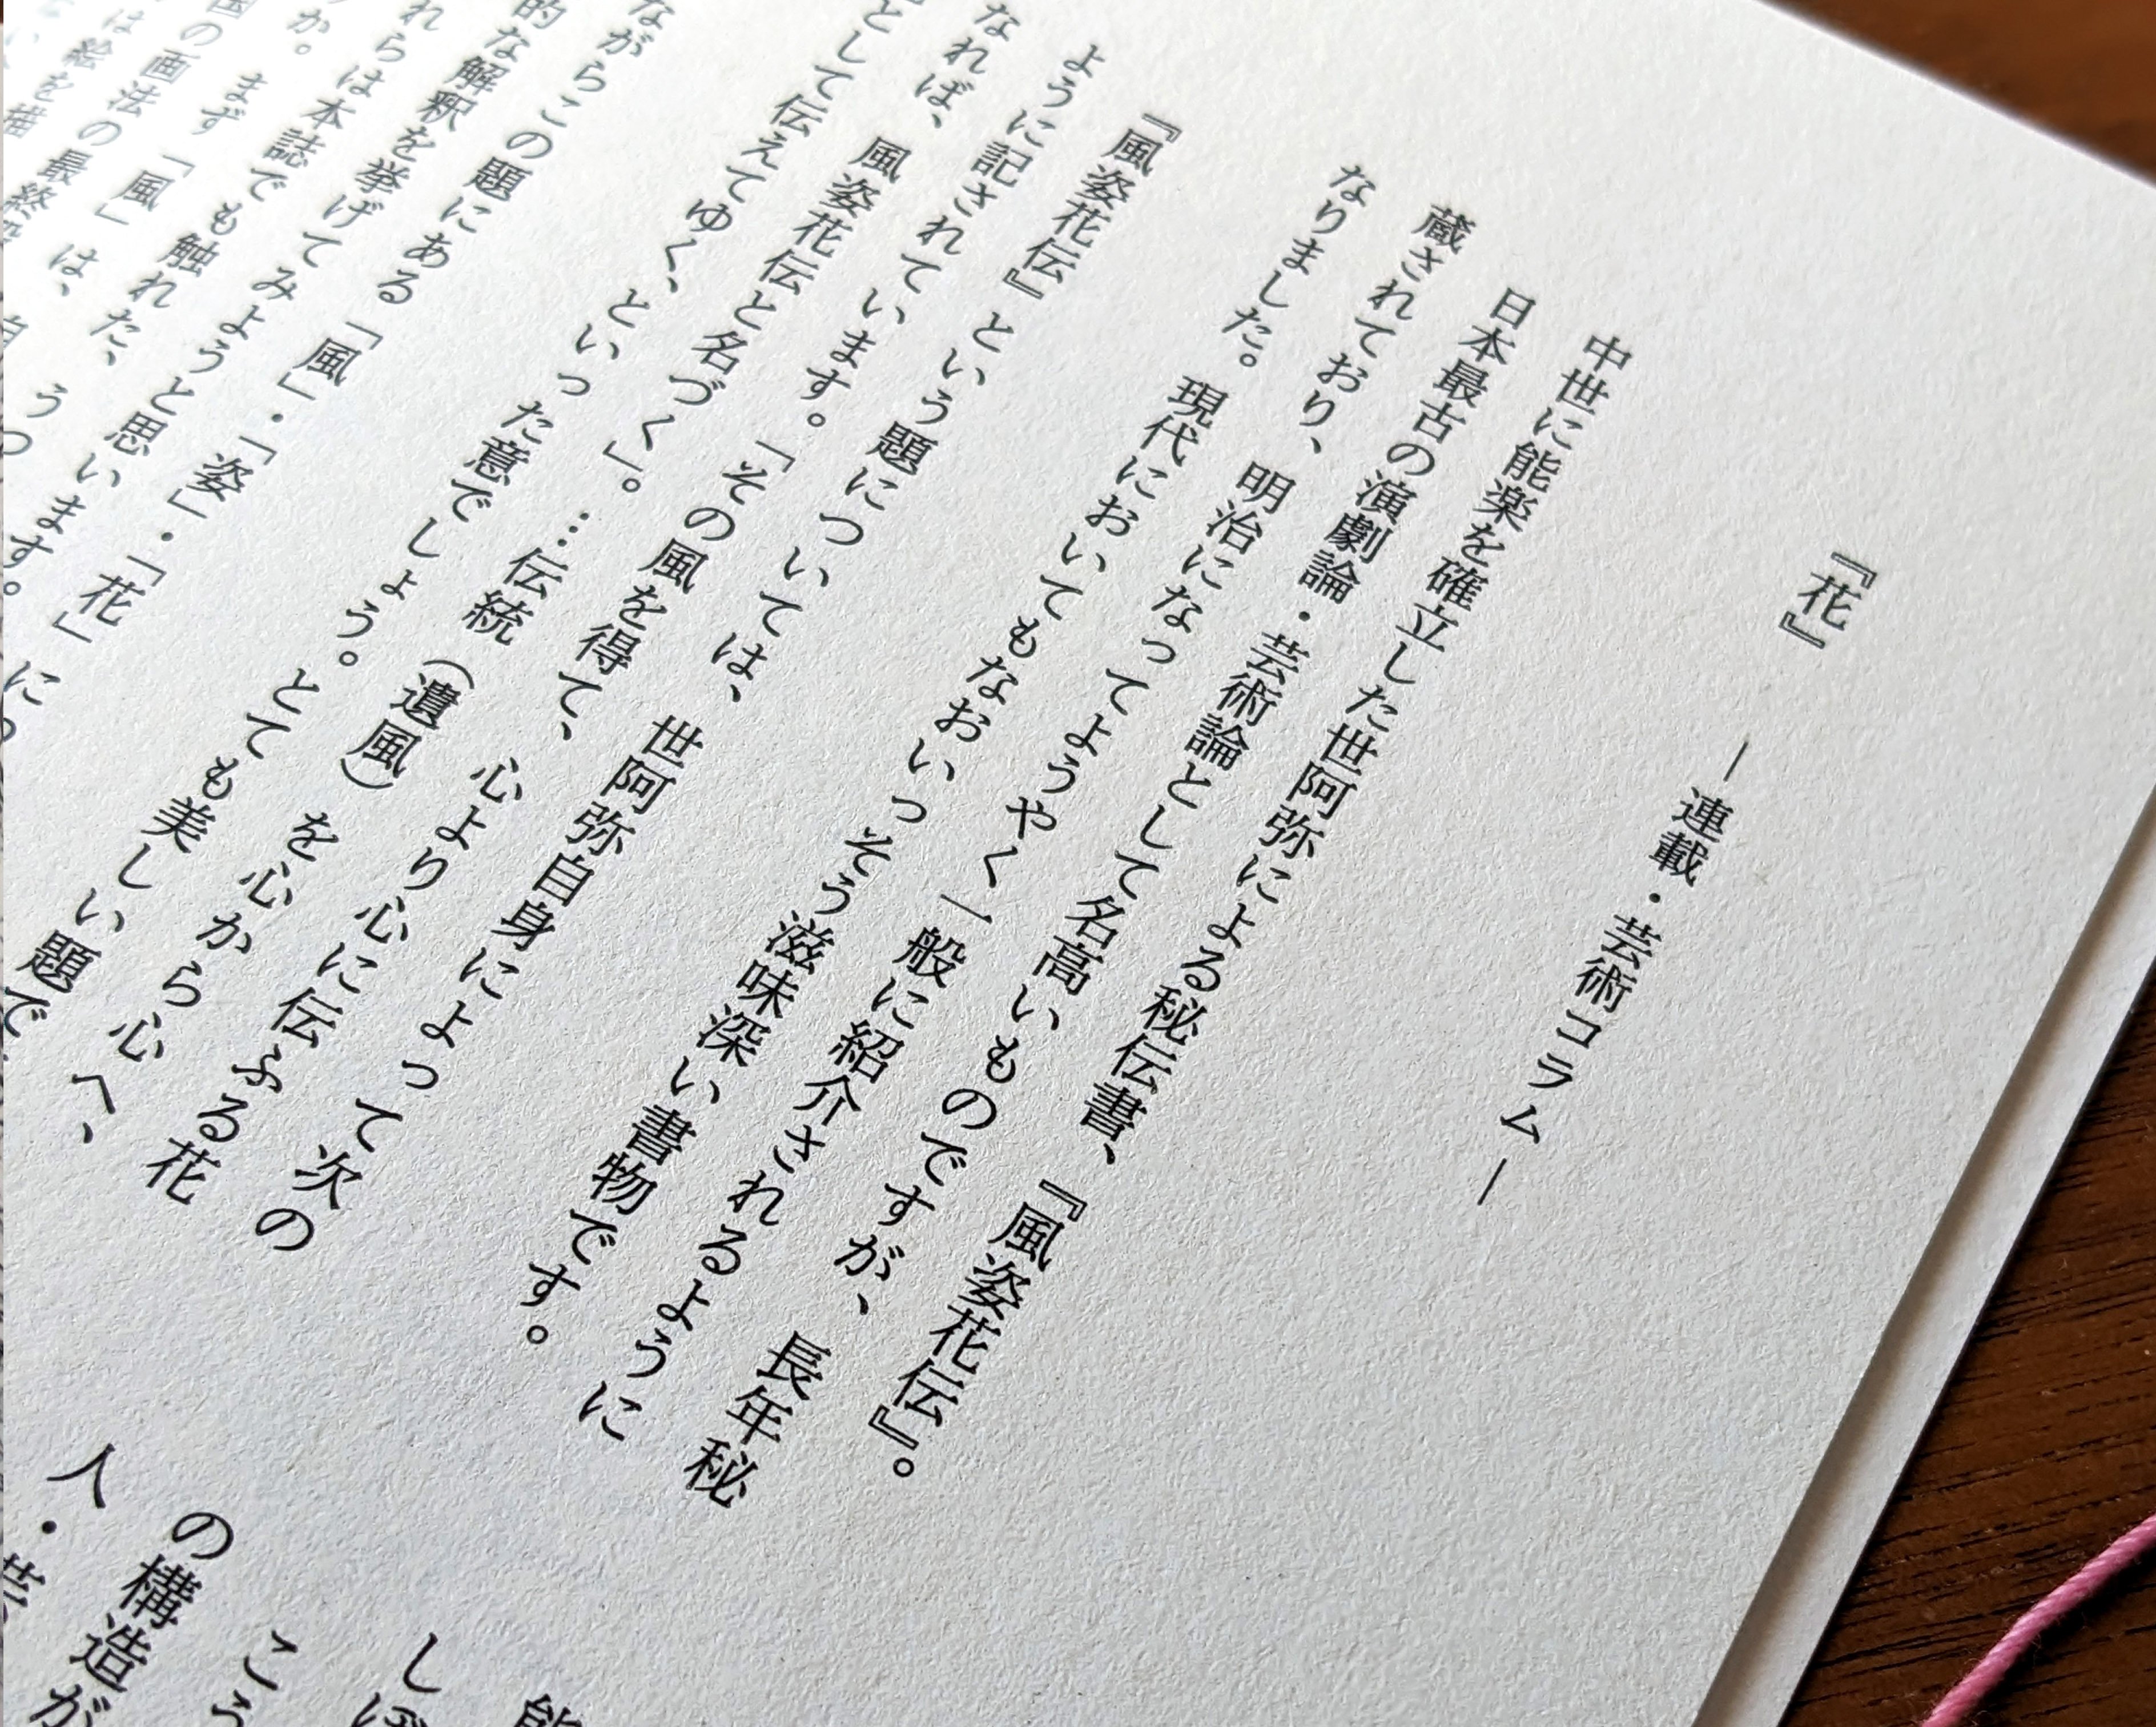 『花』 ―連載・芸術コラム―
中世に能楽を確立した世阿弥による秘伝書、『風姿花伝』。
日本最古の演劇論・芸術論として名高いものですが、長年秘
蔵されており、明治になってようやく一般に紹介されるように
なりました。現代においてもなおいっそう滋味深い書物です。
『風姿花伝』という題については、世阿弥自身によって次の
ように記されています。「その風を得て、心より心に伝ふる花
なれば、風姿花伝と名づく」。…伝統(遺風)を心から心へ、
として伝えてゆく、といった意でしょう。とても美しい題で
ながらこの題にある「風」・「姿」・「花」に
的な解釈を挙げてみようと思います。
れらは本誌でも触れた、うつ
か。まず「風」は、
の画法の最終
は絵を描
能
しぼ
こう
の構造が
人・芸